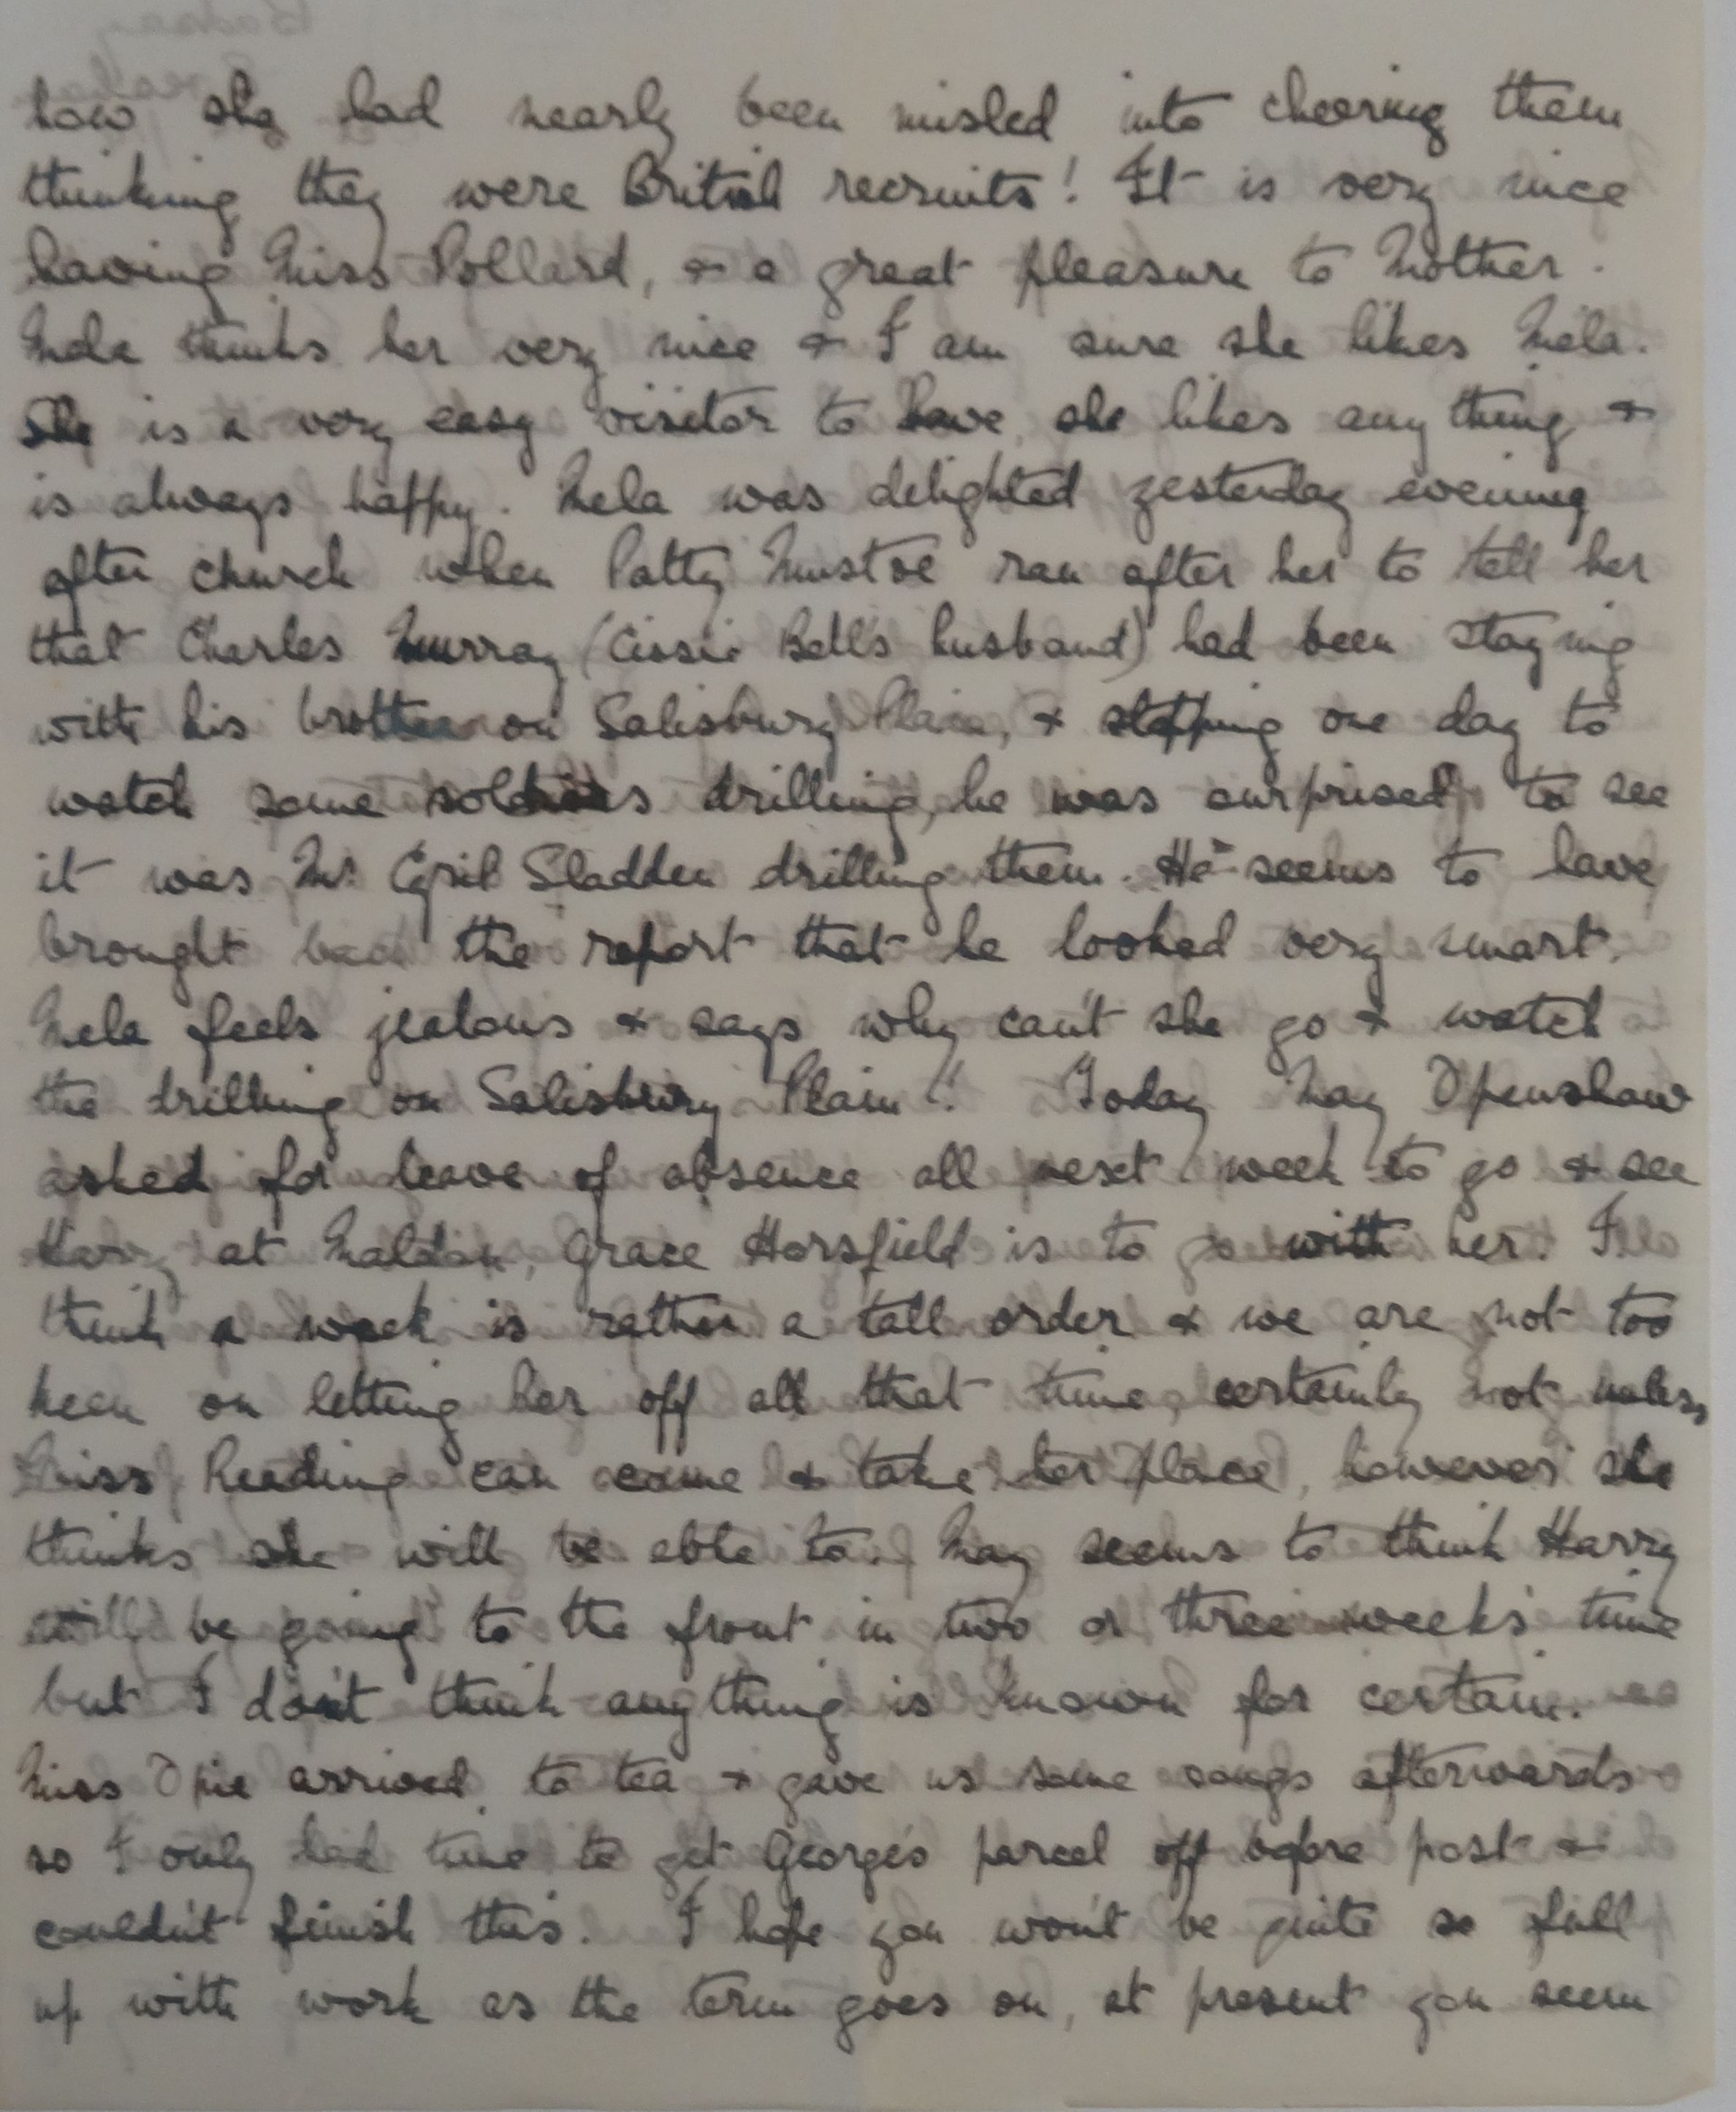 how she had nearly been misled into cheering them
thinking they were British recruits! It is very nice
having Miss Pollard, & a great pleasure to Mother.
Mela thinks her very nice & I am sure she likes Mela.
She is a very easy visitor to have, she likes anything &
is always happy. Mela was delighted yesterday evening
after church when Patty Mustoe ran after her to tell her
that Charles Murray (Cissie Bell's husband) had been staying
with his brother on Salisbury Plain, & stopping one day to
watch some soldiers drilling, he was surprised to see
it was Mr. Cyril Sladden drilling them. He seems to have
brought back the report that he looked very smart.
Mela feels jealous & says why can't she go & watch
the drilling on Salisbury Plain!! Today May Openshaw
asked for leave of absence all next week to go & see
Harry at Maldon, Grace Horsfield is to go with her. I
think a week is rather a tall order & we are not too
keen on letting her off all that time, certainly not unless
Miss Reading can come & take her place, however she
thinks she will be able to. May seems to think Harry
will be going to the front in two or three weeks' time
but I don't think anything is known for certain.
Miss Opie arrived to tea & gave us some songs afterwards
so I only had time to get George's parcel off before post &
couldn't finish this. I hope you won't be quite so full
up with work as the term goes on, at present you seem